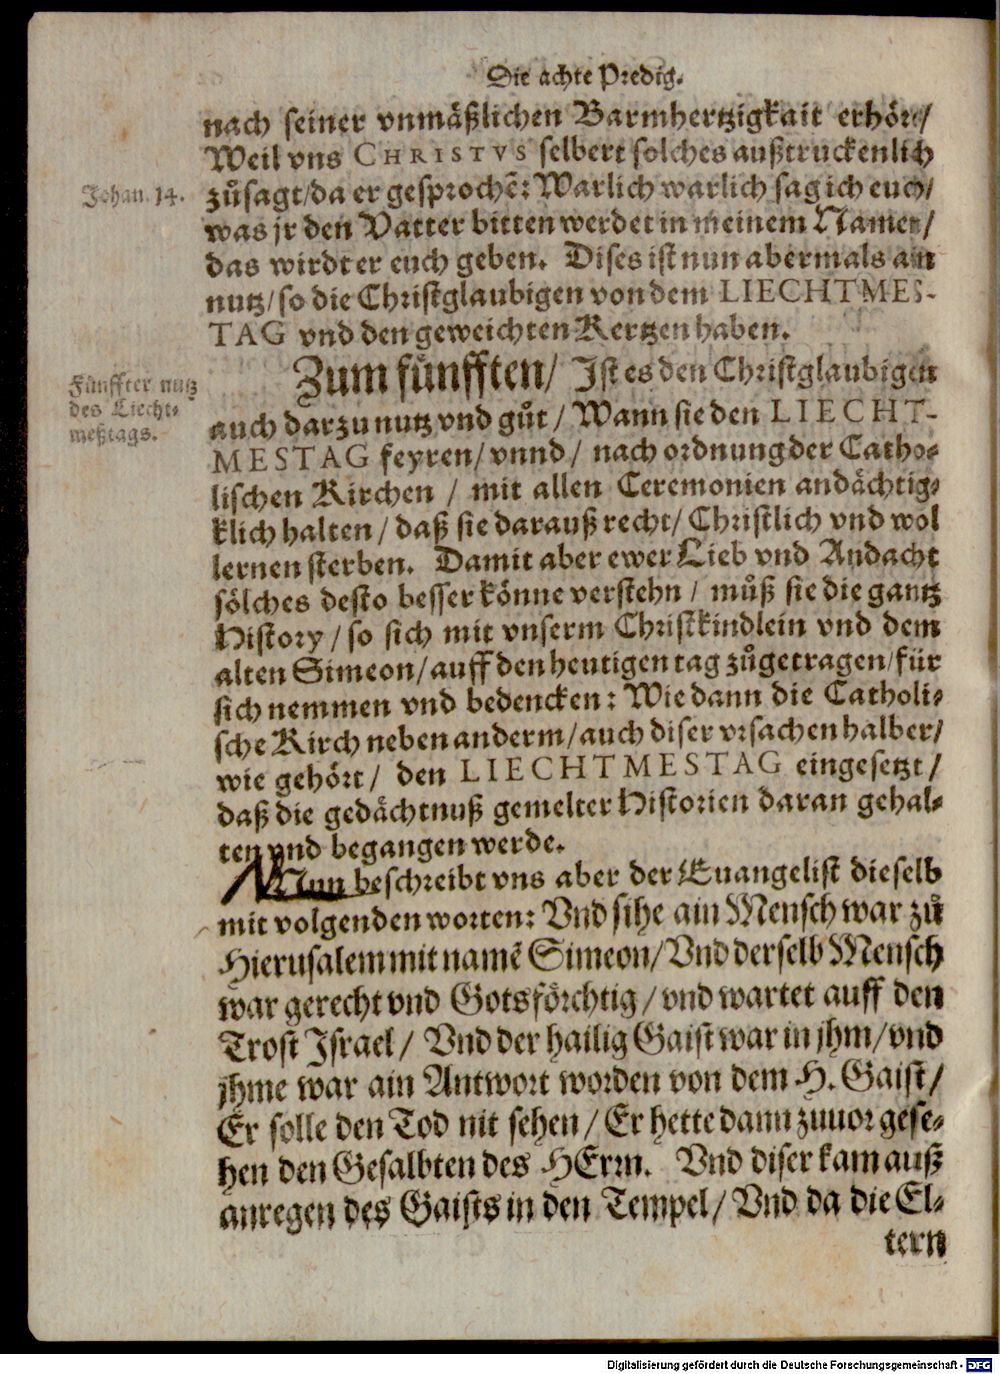 Die achte Predig.
nach seiner vnmäßlichen Barmhertzigkait erhöre/
Weil vns CHRISTVS selbert solches außtruckenlich
Johan. 14.
zůsagt/da er gesprochẽ: Warlich warlich sag ich euch/
was jr den Vatter bitten werdet in meinem Namen/
das wirdt er euch geben. Dises ist nun abermals ain
nutz/so die Christglaubigen von dem LIECHTMES-
TAG vnd den geweichten Kertzen haben.
Fünffter nutz
des Liecht-
meßtags.
Zum fünfften/ Ist es den Christglaubigen
auch darzu nutz vnd gůt/ Wann sie den LIECHT-
MESTAG feyren/ vnnd/ nach ordnung der Catho-
lischen Kirchen/ mit allen Ceremonien andächtig-
klich halten/ daß sie darauß recht/ Christlich vnd wol
lernen sterben. Damit aber ewer Lieb vnd Andacht
sölches desto besser könne verstehn/ můß sie die gantz
History/ so sich mit vnserm Christkindlein vnd dem
alten Simeon/ auff den heutigen tag zůgetragen/ für
sich nemmen vnd bedencken: Wie dann die Catholi-
sche Kirch neben anderm/ auch diser vrsachen halber/
wie gehört/ den LIECHTMESTAG eingesetzt/
daß die gedächtnuß gemelter Historien daran gehal-
ten vnd begangen werde.
Nun beschreibt vns aber der Euangelist dieselb
mit volgenden worten: Vnd sihe ain Mensch war zů
Hierusalem mit namẽ Simeon/ Vnd derselb Mensch
war gerecht vnd Gotsförchtig/ vnd wartet auff den
Trost Israel/ Vnd der hailig Gaist war in jhm/ vnd
jhme war ain Antwort worden von dem H. Gaist/
Er solle den Tod nit sehen/ Er hette dann zuuor gese-
hen den Gesalbten des HErrn. Vnd diser kam auß
anregen des Gaists in den Tempel/ Vnd da die El-
tern
Digitalisierung gefördert durch die Deutsche Forschungsgemeinschaft - DFG